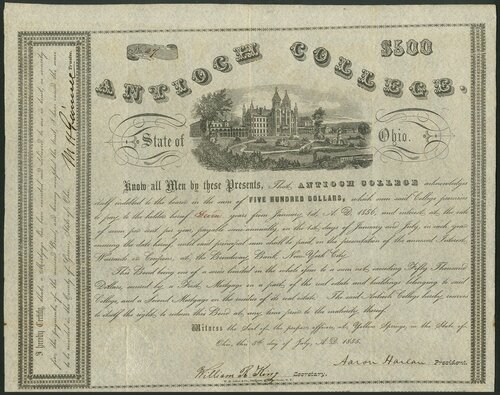 No. 47
$500
ANTIOCH COLLEGE.
State of Ohio.
Know all Men by these Presents, That ANTIOCH COLLEGE acknowledges
itself indebted to the bearer in the sum of FIVE HUNDRED DOLLARS, which sum said College promises
to pay to the holder hereof Seven years from January 1st, A.D. 1856, and interest at the rate of
seven per cent per year, payable semi-annually, on the 1st days of January and July, in each year
ensuing the date hereof, until said principal sum shall be paid on the presentation of the annexed Interest
Warrants or Coupons, at the Broadway Bank, New-York City.
This Bond being one of a series limited in the whole issue to a sum not exceeding Fifty Thousand
Dollars, secured by a First Mortgage on a part of the real estate and buildings belonging to said
College, and a Second Mortgage on the residue of its real estate. The said Antioch College hereby reserves
to itself the right to redeem this Bond at any time prior to the maturity thereof.
Witness the Seal of the proper officers, at Yellow Springs, in the State of
Ohio, this 5th day of July, A.D. 1855.
Aaron Harlan President.
William R. King Secretary.
I hereby Certify, that a Mortgage